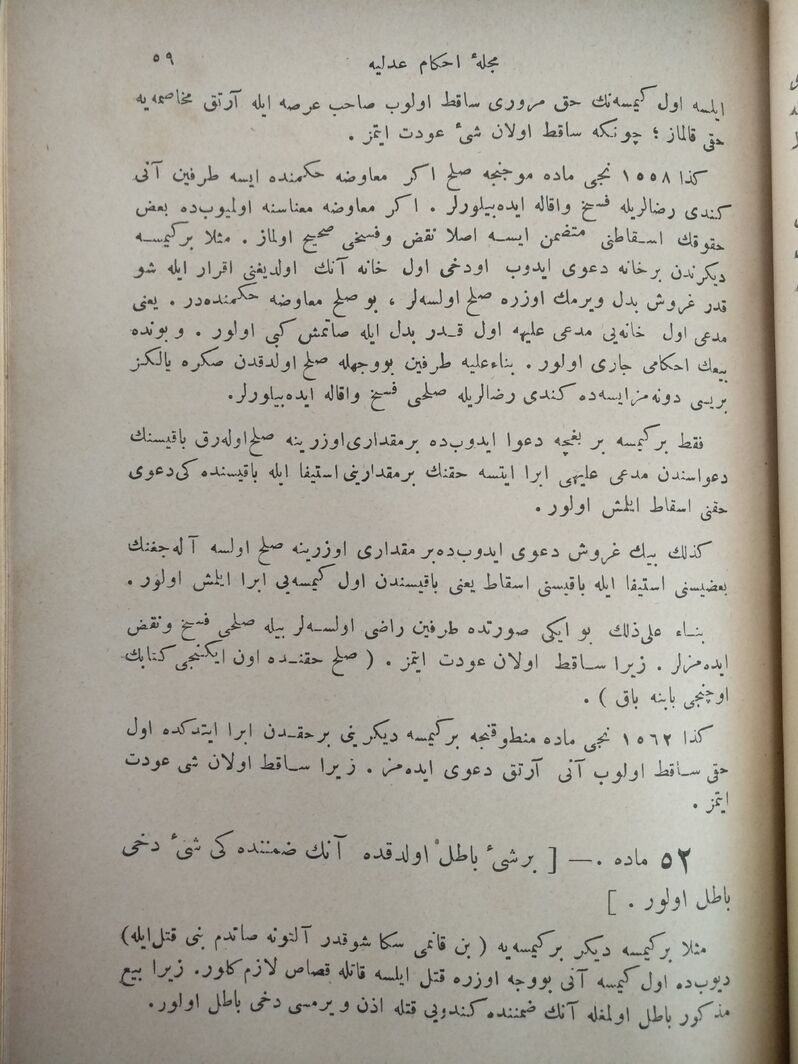 ٥٩
مجلهٔ احكام عدليه
ايلسه اول كيمسه‌نك حق مرورى ساقط اولوب صاحب عرصه ايله آرتق مخاصمه‌يه
حقى قالماز ؛ چونكه ساقط اولان شئ عودت ايتمز .
كذا ١٥٥٨ نجى ماده موجنجه صلح اكر معاوضه حكمنده ايسه طرفين آنى
كندى رضالريله فسخ واقاله ايده‌بيلورلر . اكر معاوضه معناسنه اولميوب‌ده بعض
حقوقك اسقاطنى متضمن ايسه اصلا نقض وفسخى صحيح اولماز . مثلا بركيمسه
ديكرندن برخانه دعوى ايدوب اودخى اول خانه آنك اولديغنى اقرار ايله شو
قدر غروش بدل ويرمك اوزره صلح اولسه‌لر ، بو صلح معاوضه حكمنده‌در . يعنى
مدعى اول خانه‌يى مدعى عليهه اول قدر بدل ايله صاتمش كبى اولور . و بونده
بيعك احكامى جارى اولور . بناءعليه طرفين بووجهله صلح اولدقدن صكره يالكز
بريسى دونه‌مزايسه‌ده كندى رضالريله صلحى فسخ واقاله ايده‌بيلورلر.
فقط بركيمسه بر بغچه دعوا ايدوب‌ده برمقدارى‌اوزرينه صلح‌اوله‌رق باقيسنك
دعواسندن مدعى عليهى ابرا ايتسه حقنك برمقدارينى‌استيفا ايله باقيسنده كى‌دعوى
حقنى اسقاط ايلمش اولور .
كذلك بيك غروش دعوى ايدوب‌ده‌بر مقدارى اوزرينه صلح اولسه آله‌جغنك
بعضيسنى استيفا ايله باقيسنى اسقاط يعنى باقيسندن اول كيمسه‌يى ابرا ايلمش اولور .
بناء على‌ذلك بو ايكى صورتده طرفين راضى اولسه‌لر بيله صلحى فسخ و نقض
ايده‌مزلر . زيرا ساقط اولان عودت ايتمز . ( صلح حقنده اون ايكنجى كتابك
اوچنجى بابنه باق ) .
كذا ١٥٦٢ نجى ماده منطوقنجه بركيمسه ديكرينى برحقدن ابرا ايتدكده اول
حق ساقط اولوب آنى آرتق دعوى ايده‌مز . زيرا ساقط اولان شى عودت
ايتمز .
٥٢ ماده .— [ برشئ باطل اولدقده آنك ضمننده كى شئ دخى
باطل اولور . ]
مثلا بركيمسه ديكر بركيمسه‌يه ( بن قانمى سكا شوقدر آلتونه صاتدم بنى قتل‌ايله)
ديوب‌ده اول كيمسه آنى بووجه اوزره قتل ايلسه قاتله قصاص لازم‌كلور. زيرا بيع
مذكور باطل اولمغله آنك ضمننده كندويى قتله اذن و يرمسى دخى باطل اولور.